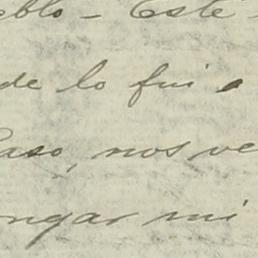 eblo - Este
de lo fui a
Paso, nos ve
ongar mi